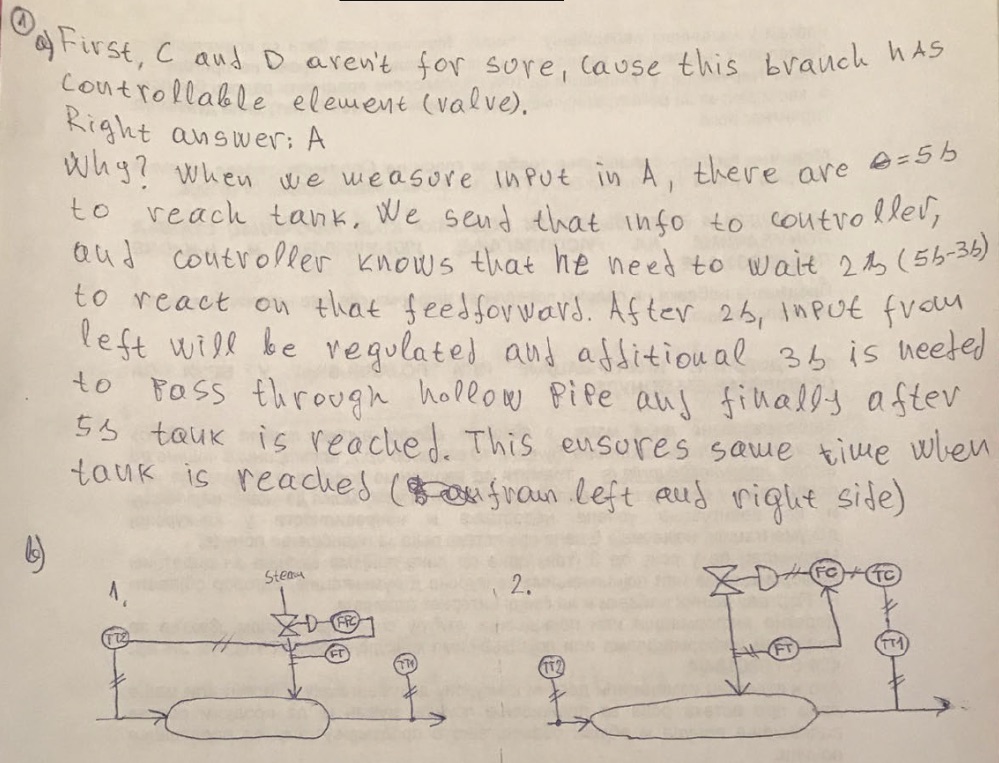 ①
a) First, C and D aren't for sure, cause this branch HAS
controllable element (valve).
Right answer: A
Why? When we measure input in A, there are θ=5s
to reach tank. We send that info to controller,
and controller knows that he need to wait 2s (5s-3s)
to react on that feedforward. After 2s, input from
left will be regulated and additional 3s is needed
to pass through hollow pipe and finally after
5s tank is reached. This ensures same time when
tank is reached (from left and right side)
b)
1.
Steam
2.
FC
TC
TT2
FFC
FT
TT1
TT2
FT
TT1